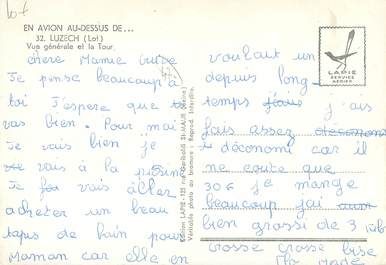 lot
EN AVION AU-DESSUS DE...
32. LUZECH (Lot)
Vue générale et la Tour
chere Mamie
Je pense beaucoup à
toi J'espere que tu
vas bien. Pour moi
Je vais bien je
vais a la pissine
Je vais aller
acheter un beau
tapis de bain pour
Maman car elle en
Edition LAPIE - 125 rue Garibaldi St-MAUR (Seine)
Véritable photo au bromure - Reprod. interdite.
LAPIE
SERVICE
AERIEN
voulait un
depuis long-
temps jais
fais assez
d'économi car il
ne coute que
30 € je mange
beaucoup j'ai
bien grossi de 3
Grosse Grosse bise